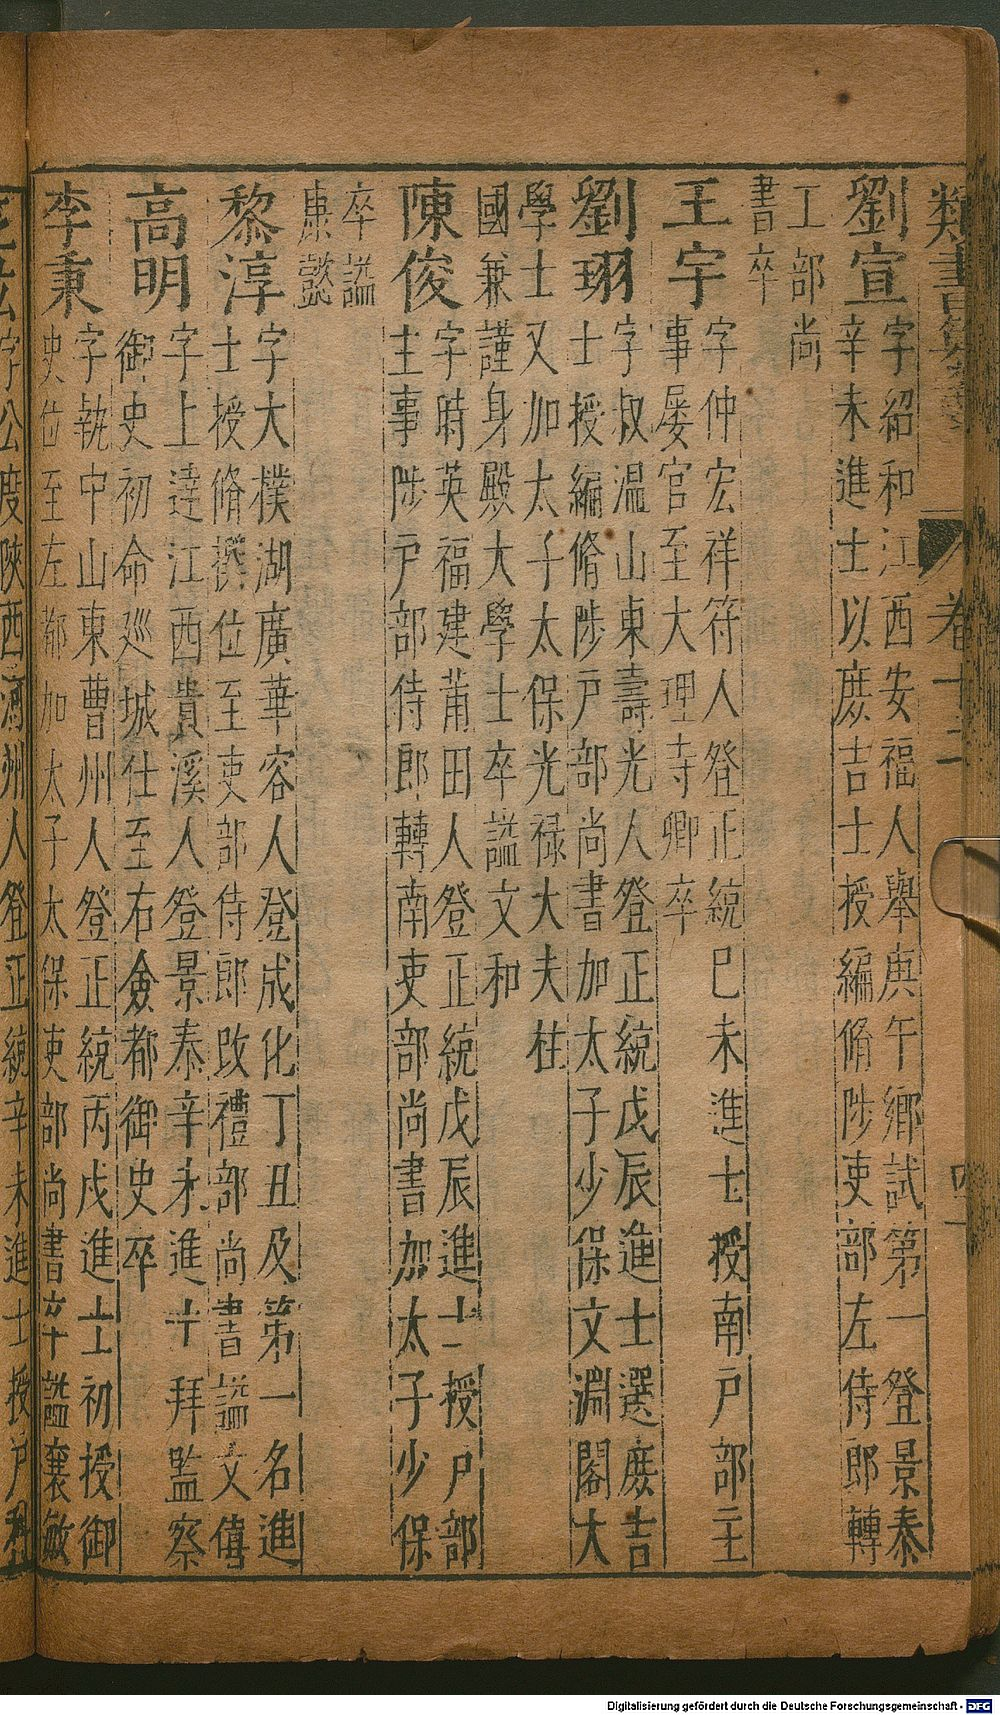 類書
卷十二
四
劉宣 字紹和江西安福人舉庚午鄉試第一登景泰
辛未進士以庶吉士授編脩陟吏部左侍郎轉
工部尚
書卒
王宇 字仲宏祥符人登正統巳未進士授南戸部主
事屡官至大理寺卿卒
劉珝 字叔温山東壽光人登正統戊辰進士選庶吉
士授編脩陟戸部尚書加太子少保文淵閣大
學士又加太子太保光禄大夫柱
國兼謹身殿大學士卒謚文和
陳俊 字時英福建莆田人登正統戊辰進士授戸部
主事陟戸部侍郎轉南吏部尚書加太子少保
卒謚
康懿
黎淳 字大樸湖廣華容人登成化丁丑及第一名進
士授脩撰位至吏部侍郎改禮部尚書謚文僖
高明 字上達江西貴溪人登景泰辛未進士拜監察
御史初命廵城仕至右僉都御史卒
李秉 字執中山東曹州人登正統丙戌進士初授御
史位至左都加太子太保吏部尚書卒謚襄敏
字公度陝西人登正統辛未進士授戸科
Digitalisierung gefördert durch die Deutsche Forschungsgemeinschaft - DFG